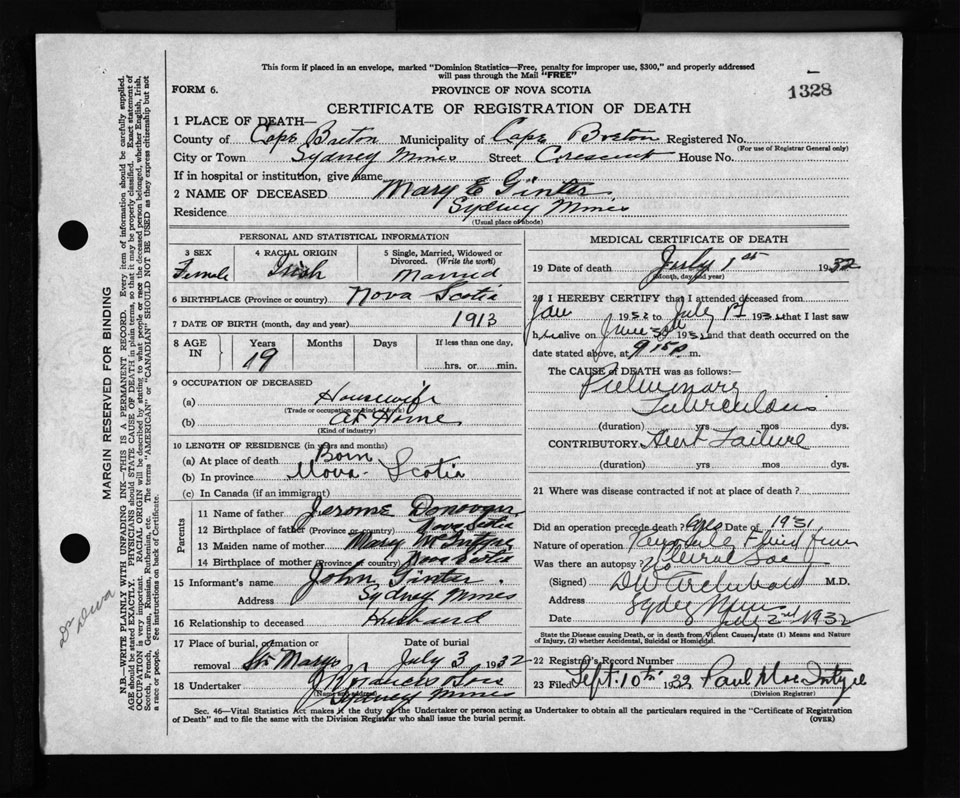 This form if placed in an envelope, marked "Dominion Statistics—Free, penalty for improper use, $300," and properly addressed
will pass through the Mail "FREE"
FORM 6. PROVINCE OF NOVA SCOTIA 1328
CERTIFICATE OF REGISTRATION OF DEATH
1 PLACE OF DEATH—
County of Cape Breton Municipality of Cape Breton Registered No.
(For use of Registrar General only)
City or Town Sydney Mines Street Crescent House No.
If in hospital or institution, give name
2 NAME OF DECEASED Mary E Ginter
Residence Sydney Mines
(Usual place of abode)
PERSONAL AND STATISTICAL INFORMATION
3 SEX Female
4 RACIAL ORIGIN Irish
5 Single, Married, Widowed or
Divorced. (Write the word)
Married
6 BIRTHPLACE (Province or country) Nova Scotia
7 DATE OF BIRTH (month, day and year) 1913
8 AGE IN Years Months Days If less than one day,
19 hrs. or min.
9 OCCUPATION OF DECEASED
(a) Housewife
(Trade or occupation or kind of work)
(b) At Home
(Kind of industry)
10 LENGTH OF RESIDENCE (in years and months)
(a) At place of death Born
(b) In province Nova Scotia
(c) In Canada (if an immigrant)
Parents
11 Name of father Jerome Donovan
12 Birthplace of father (Province or country) Nova Scotia
13 Maiden name of mother Mary McIntyre
14 Birthplace of mother (Province or country) Nova Scotia
15 Informant's name John Ginter
Address Sydney Mines
16 Relationship to deceased Husband
17 Place of burial, cremation or Date of burial
removal St. Marys July 3 1932
18 Undertaker
(Name and address)
Sydney Mines
MEDICAL CERTIFICATE OF DEATH
19 Date of death July 1st 1932
(Month, day and year)
20 I HEREBY CERTIFY that I attended deceased from
Jan 1932 to July 1st 1932 that I last saw
her alive on June 30th 1932 and that death occurred on
date stated above, at 9 15 P. m.
The CAUSE of DEATH was as follows:—
Pulmonary
Tuberculosis
(duration) yrs mos dys.
CONTRIBUTORY Heart Failure
(duration) yrs mos dys.
21 Where was disease contracted if not at place of death?
Did an operation precede death? Yes Date of 1931
Nature of operation Fluid from
Was there an autopsy? No Pleural Sac
(Signed) DW Archibald M.D.
Address Sydney Mines
Date July 2nd 1932
State the Disease causing Death, or in death from Violent Causes, state (1) Means and Nature
of Injury, (2) whether Accidental, Suicidal or Homicidal.
22 Registrar's Record Number
23 Filed Sept. 10th 1932 Paul MacIntyre
(Division Registrar)
Sec. 46—Vital Statistics Act makes it the duty of the Undertaker or person acting as Undertaker to obtain all the particulars required in the "Certificate of Registration
of Death" and to file the same with the Division Registrar who shall issue the burial permit. (OVER)
MARGIN RESERVED FOR BINDING
N.B.—WRITE PLAINLY WITH UNFADING INK—THIS IS A PERMANENT RECORD. Every item of information should be carefully supplied.
AGE should be stated EXACTLY. PHYSICIANS should STATE CAUSE OF DEATH in plain terms, so that it may be properly classified. Exact statement of
OCCUPATION is very important. RACIAL ORIGIN will be described by stating to what people or race the deceased person belonged, whether English, Irish,
Scotch, French, German, Russian, Ruthenian, etc. The terms "AMERICAN" or "CANADIAN" SHOULD NOT BE USED as they express citizenship but not
a race or people. See instructions on back of Certificate.